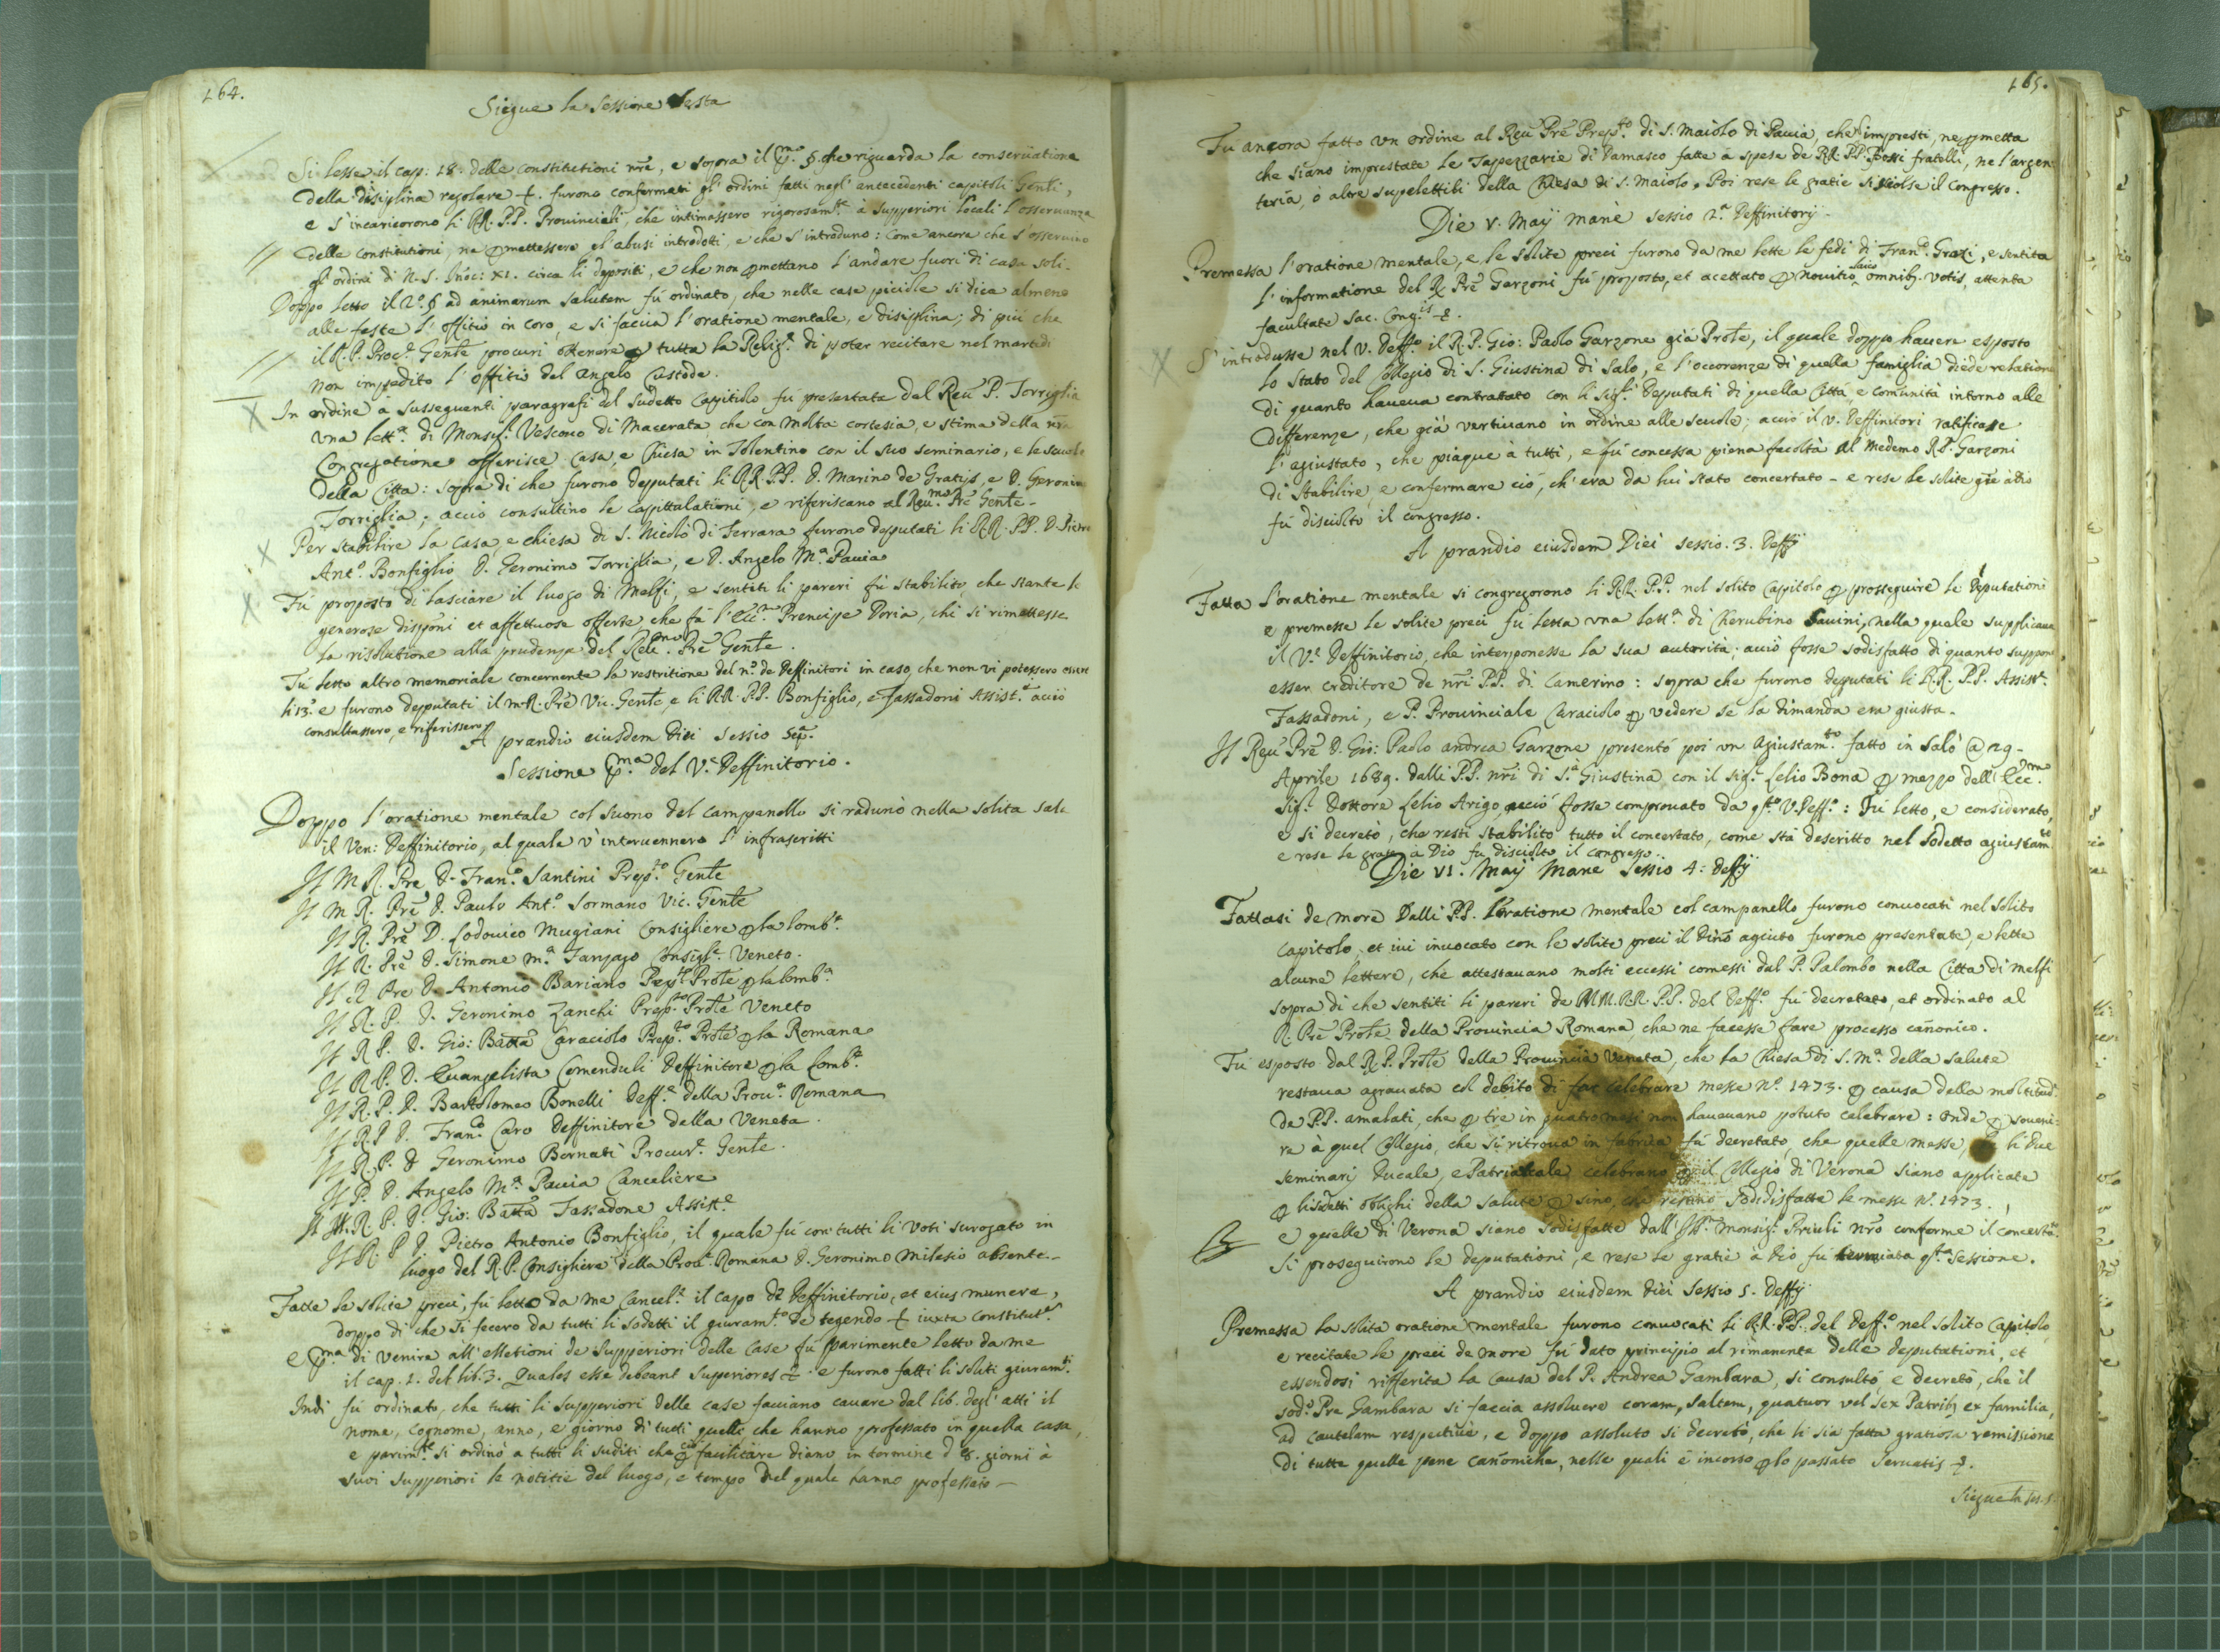 164.
Siegue la Sessione Sesta
Si lesse il cap: 18. delle constitutioni nr̃e, e sopra il p.mo §. che riguarda la conseruatione
della disiplina regolare &. furono confermati gl' ordini fatti negl' antecedenti capitoli Gen̅li,
e s' incaricorono li RR. PP. Prouinciali, che intimassero rigorosam.te à Supperiori locali l' osseruanza
delle Constitutioni, ne p̲mettessero gl' abusi introdotti, e che s' introduno: Come ancora che s' osseruino
gl' ordini di N. S. Inõc: XI. circa li depositi, e che non p̲mettano l' andare fuori di casa soli.
Doppo letto il 2.º § ad animarum salutem fù ordinato, che nelle case picciole si dica almeno
alle feste l' offitio in coro, e si faccia l' oratione mentale, e disiplina; di più che
il R. P. Proc.r Gen̅te procuri ottenere p̲ tutta la Relig.e di poter recitare nel martedi
non impedito l' offitio del angelo Custode.
In ordine à susseguenti paragrafi del sudetto Capitolo fù presentata dal Reu̅ P. Torriglia
vna lett.a di Monsig.r Vescouo di Macerata che con molta cortesia, e stima della nr̃a
Congregatione offerisce Casa, e Chiesa in Tolentino con il suo seminario, e le scuole
della Citta: sopra di che furono deputati li RR. PP. D. Marino de Gratijs, e D. Geronimo
Torriglia; acciò consultino le Capittulationi, e riferiscano al Reu.mo Pr̃e Gen̅te.
Per stabilire la Casa, e chiesa di S. Nicolò di Ferrara furono deputati li RR. PP. D. Pietro
Ant.o Bonfiglio D. Geronimo Torriglia, e D. Angelo M.a Pauia
Fù proposto di lasciare il luogo di Melfi, e sentiti li pareri fù stabilito, che stante le
generose dispõni et affettuose offerte che fà l' Ecc.mo Prencipe Doria, che si rimettesse
la risolutione alla prudenza del Reu.mo Pr̃e Gen̅te.
Fù letto altro memoriale concernente la restritione del n.o de Deffinitori in caso, che non vi potessero essere
li 13. e furono deputati il m. R. Pr̃e Vic. Gen̅te, e li RR. PP. Bonfiglio, e Tassadoni Assist.e acciò
consultassero, e riferissero
A prandio eiusdem diei sessio Sep.a
Sessione p.ma del V.e Deffinitorio.
Doppo l' oratione mentale col suono del campanello si radunò nella solita sala
il Ven: Deffinitorio, al quale v' interuennero l' infrascritti
Il M R. Pre D. Fran.o Santini Prep.to Gen̅te
Il M R. Pr̃e D. Paulo Ant.o Sormano Vic. Gen̅te
Il R. Pr̃e D. Lodouico Mugiani Consigliere p̲ la lomb.a
Il R. Pr̃e D. Simone M.a Consigl.e Veneto.
Il R. Pre D. Antonio Bariano Prep.to Pro̅te p̲ la lomb.a
Il R. P. D. Geronimo Zanchi Prep.to Pro̅te Veneto
Il R P. D. Gio: Batta Caraciolo Prep.to Pro̅te p̲ la Romana
Il R. P. D. Euangelista Comenduli Deffinitore p̲ la Lomb.a
Il R. P. D. Bartolomeo Bonelli Deff.e della Prou.a Romana
Il R. P. D. Fran.o Caro Deffinitore della Veneta.
Il R. P. D. Geronimo Bornati Procur.e Gen̅te.
Il P. D. Angelo M.a Pauia Cancaliere
Il M. R. P. D. Gio: Batta Tassadone Assist.e
Il R. P. D. Pietro Antonio Bonfiglio, il quale fù con tutti li voti surogato in
luogo del R. P. Consigliere della Prou.a Romana D. Geronimo Milesio absente.
Fatte le solite preci, fù letto da me Cancel.e il capo de Deffinitorio, et eius munere,
doppo di che si fecero da tutti li sodetti il giuram.to de tegendo & iuxta Constitut.es
e p.ma di venire all' elletioni de Supperiori delle Case fù parimente letto da me
il cap. 1. del lib. 3. Quales esse debeant Superiores &. e furono fatti li soliti giuram.ti
Indi fù ordinato, che tutti li Supperiori delle case facciano cauare dal lib. degl' atti il
nome, Cognome, anno, e giorno di tutti quelli, che hanno professato in quella casa,
e parim.te si ordinò a tutti li suditi che p̲ ciò facilitare diano in termine d 8. giorni à
suoi Supperiori le notitie del luogo, e tempo nel quale hanno professato
165.
Fù ancora fatto vn ordine al Reu̅ Pr̃e Prep.to di S. Maiolo di Pauia, che impresti, ne p̲metta
che siano imprestate le Tapezzarie di Damasco fatte à spese de RR. PP. Bossi fratelli, ne l'argen
teria, ò altre supelettili della Chiesa di S. Maiolo. Poi rese le gratie si sciolse il Congresso.
Die V. Maij manè sessio 2.a Deffinitorij.
Premessa l'oratione mentale, e le solite preci furono da me lette le fedi di Fran.o Grazi, e sentita
l' informatione del R. Pr̃e Garzoni fù proposto, et acettato p̲ nouitio laico omnib. votis, attenta
facultate Sac. Cong.is &.
S' introdusse nel V. Deff.o il R. P. Gio: Paolo Garzone già Pro̅te, il quale doppo hauere esposto
lo stato del Collegio di S. Giustina di Salo, e l' occorenze di quella famiglia diede relatione
di quanto haueua contrattato con li Sig.ri Deputati di quella Città, e comunità intorno alle
differenze, che già vertiuano in ordine alle scuole; acciò il V. Deffinitori ratificasse
l' agiustato, che piaque à tutti, e fù concessa piena facoltà al medemo R. P. Garzoni
di stabilire, e confermare ciò, ch' era da lui stato concertato - e rese le solite gr̃e à Dio
fù disciolto il congresso.
A prandio eiusdem Diei sessio. 3. Deffij
Fatta l'oratione mentale si congregorono li RR. PP. nel solito Capitolo p̲ prosseguire le Deputationi
e premesse le solite preci fù letta vna lett.a di Cherubino Sauini, nella quale supplicaua
il V.e Deffinitorio, che interponesse la sua autorità, acciò fosse sodisfatto di quanto suppone
esser creditore de nr̃i PP. di Camerino: sopra che furono deputati li R.R. P.P. Assist.e
Tassadoni, e P. Prouinciale Caraciolo p̲ vedere se la dimanda era giusta.
Il Reu̅ Pr̃e D. Gio: Paolo andrea Garzone presentò poi vn agiustam.to fatto in Salò @ 29.
Aprile 1689. dalli P.P. nr̃i di S.a Giustina con il sig.r Lelio Bona p̲ mezzo dell' Ecc.mo
Sig.r Dottore Lelio Arigo, acciò fosse comprouato da q.sto V. Deff.o: Fù letto, e considerato,
e si decretò, che resti stabilito tutto il concertato, come stà descritto nel sodetto agiustam.to
e rese le gratie à Dio fu disciolto il congresso.
Die VI. Maij Mane Sessio 4: Deffij
Fattasi de more dalli P.P. l'oratione mentale col campanello furono conuocati nel solito
Capitolo, et iui inuocato con le solite preci il diu̅o agiuto furono presentate, e lette
alcune lettere, che attestauano molti eccessi comessi dal P. Palombo nella Citta di Melfi
sopra di che sentiti li pareri de M M. R R. P P. del Deff.o fù decretato, et ordinato al
R. Pr̃e Pro̅te della Prouincia Romana, che ne facesse fare processo canonico.
Fù esposto dal R. P. Pro̅te della Prouincia Veneta, che la Chiesa di S. M.a della Salute
restaua agrauata col debito di far celebrare messe N.o 1473. p̲ causa della moltitud.
de P.P. amalati, che p̲ tre in quatro mesi non haueuano potuto celebrare: onde p̲ soueni:
re à quel Collegio, che si ritroua in fabrica fù decretato, che quelle messe, che li due
Seminarj Ducale, e Patriarcale celebrano p̲ il Collegio di Verona siano applicate
p̲ li sudetti oblighi della Salute p̲ sino, che restino sodisfatte le messe N.o 1473.
e quelle di Verona siano sodisfatte dall' Ill.mo Monsig.r Priuli nr̃o conforme il concertato.
Si proseguirono le deputationi, e rese le gratie à Dio fù terminata q.sta Sessione.
A prandio eiusdem diei sessio 5. Deffij
Premessa la solita oratione mentale furono conuocati li R.R. P.P. del Deff.o nel solito Capitolo
e recitate le preci de more fù dato principio al rimanente delle deputationi, et
essendosi rifferita la causa del P. Andrea Gambara, si consultò, e decretò, che il
sod.o Pre Gambara si faccia assoluere coram, saltem, quatuor vel sex Patrib; ex familia,
ad cautelam respectiuè, e doppo assoluto si decretò, che li sia fatta gratiosa remissione
di tutte quelle pene canoniche, nelle quali è incorso p̲ lo passato seruatis &.
Siegue la ses. 5